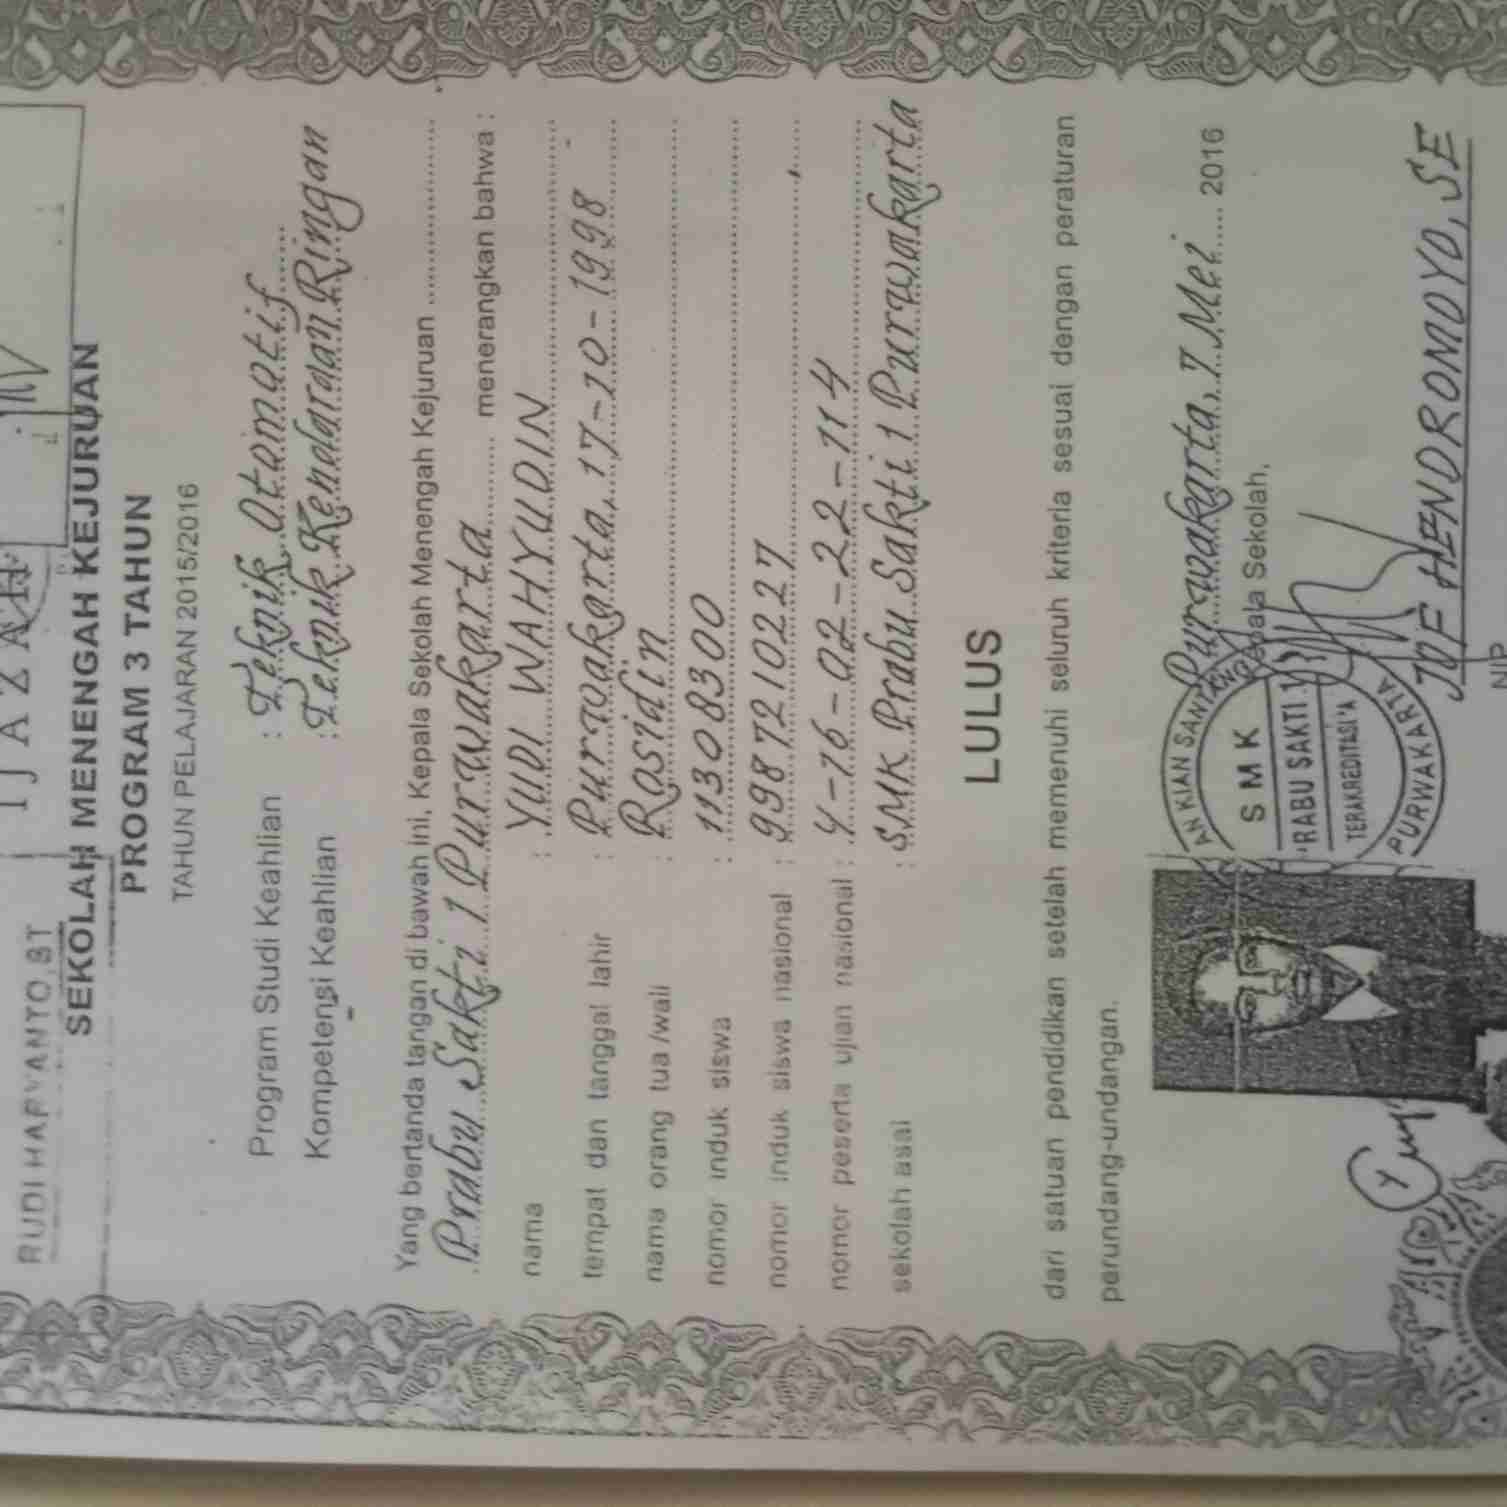 RUDI HARYANTO,ST
IJAZAH
SEKOLAH MENENGAH KEJURUAN
PROGRAM 3 TAHUN
TAHUN PELAJARAN 2015/2016
Program Studi Keahlian : Teknik Otomotif
Kompetensi Keahlian : Teknik Kendaraan Ringan
Yang bertanda tangan di bawah ini, Kepala Sekolah Menengah Kejuruan
Prabu Sakti 1 Purwakarta menerangkan bahwa :
nama : YUDI WAHYUDIN
tempat dan tanggal lahir : Purwakarta, 17-10-1998
nama orang tua/wali : Rosidin
nomor induk siswa : 11308300
nomor induk siswa nasional : 9987210227
nomor peserta ujian nasional : 4-16-02-22-114
sekolah asal : SMK Prabu Sakti 1 Purwakarta
LULUS
dari satuan pendidikan setelah memenuhi seluruh kriteria sesuai dengan peraturan
perundang-undangan.
Purwakarta, 7 Mei 2016
Kepala Sekolah,
AN KIAN SANTANG
SMK
PRABU SAKTI 1
TERAKREDITASI "A
PURWAKARTA
JOE HENDROMOYO, SE
NIP